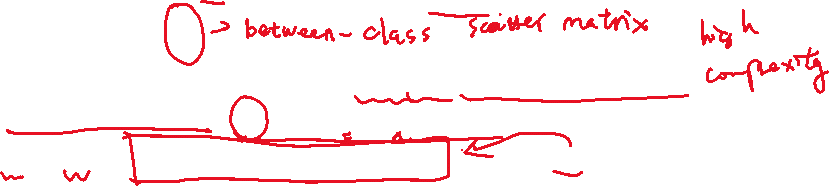 between-class scatter matrix
high
complexity
w w